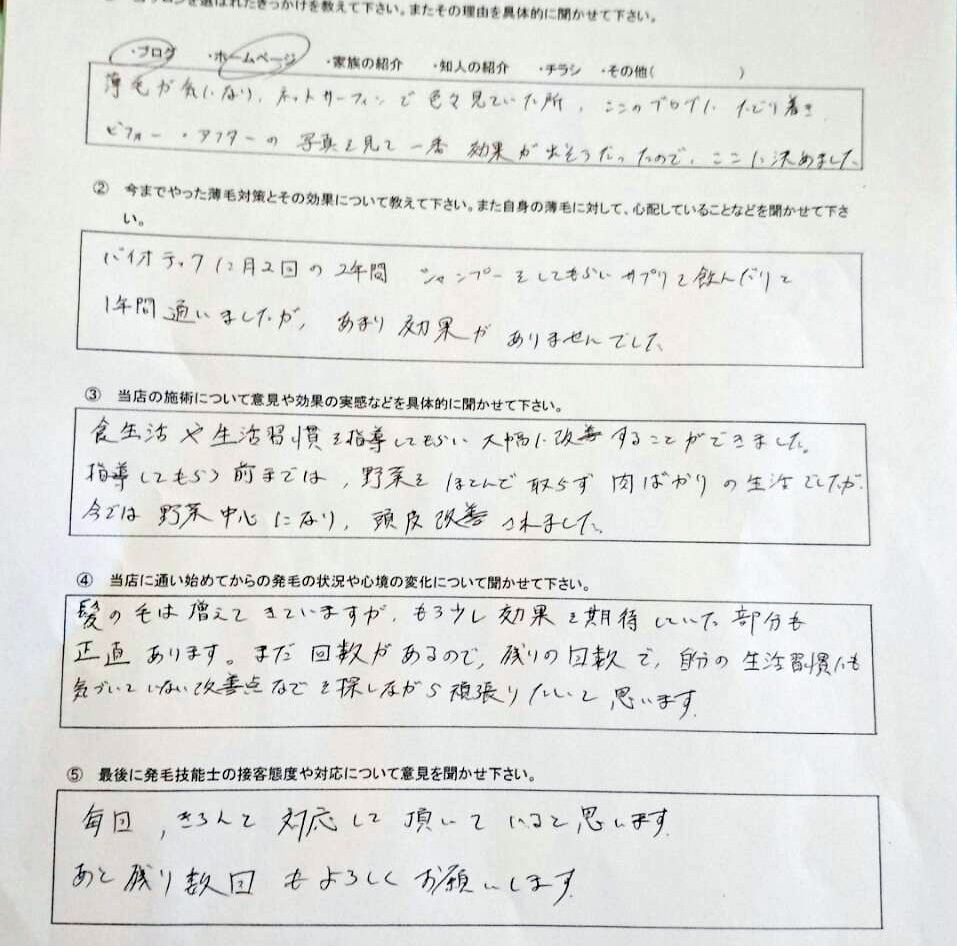 サロンを選ばれたきっかけを教えて下さい。またその理由を具体的に聞かせて下さい。
・ブログ ・ホームページ ・家族の紹介 ・知人の紹介 ・チラシ ・その他( )
薄毛が気になり、ネットサーフィンで色々見ていた所、ここのブログにたどり着き
ビフォー・アフターの写真を見て一番効果が出そうだったので、ここに決めました
② 今までやった薄毛対策とその効果について教えて下さい。また自身の薄毛に対して、心配していることなどを聞かせて下さ
い。
バイオテックに月2回の2年間 シャンプーをしてもらいサプリを飲んだりと
1年間通いましたが、あまり効果がありませんでした。
③ 当店の施術について意見や効果の実感などを具体的に聞かせて下さい。
食生活や生活習慣を指導してもらい大幅に改善することができました。
指導してもらう前までは、野菜をほとんで取らず肉ばかりの生活でしたが、
今では野菜中心になり、頭皮改善されました。
④ 当店に通い始めてからの発毛の状況や心境の変化について聞かせて下さい。
髪の毛は増えてきていますが、もう少し効果を期待していた部分も
正直あります。まだ回数があるので、残りの回数で、自分の生活習慣にも
気づいていない改善点などを探しながら頑張りたいと思います。
⑤ 最後に発毛技能士の接客態度や対応について意見を聞かせ下さい。
毎回、きちんと対応して頂いていると思います。
あと残り数回もよろしくお願いします。